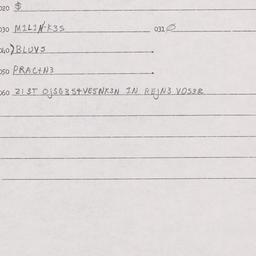 020 $
030 MILIN·K3S 031 0
040 )BLUVS
050 PRAC+N3
060 21 ST OJSG3S4VESNK3N IN REJN3 VOS3R